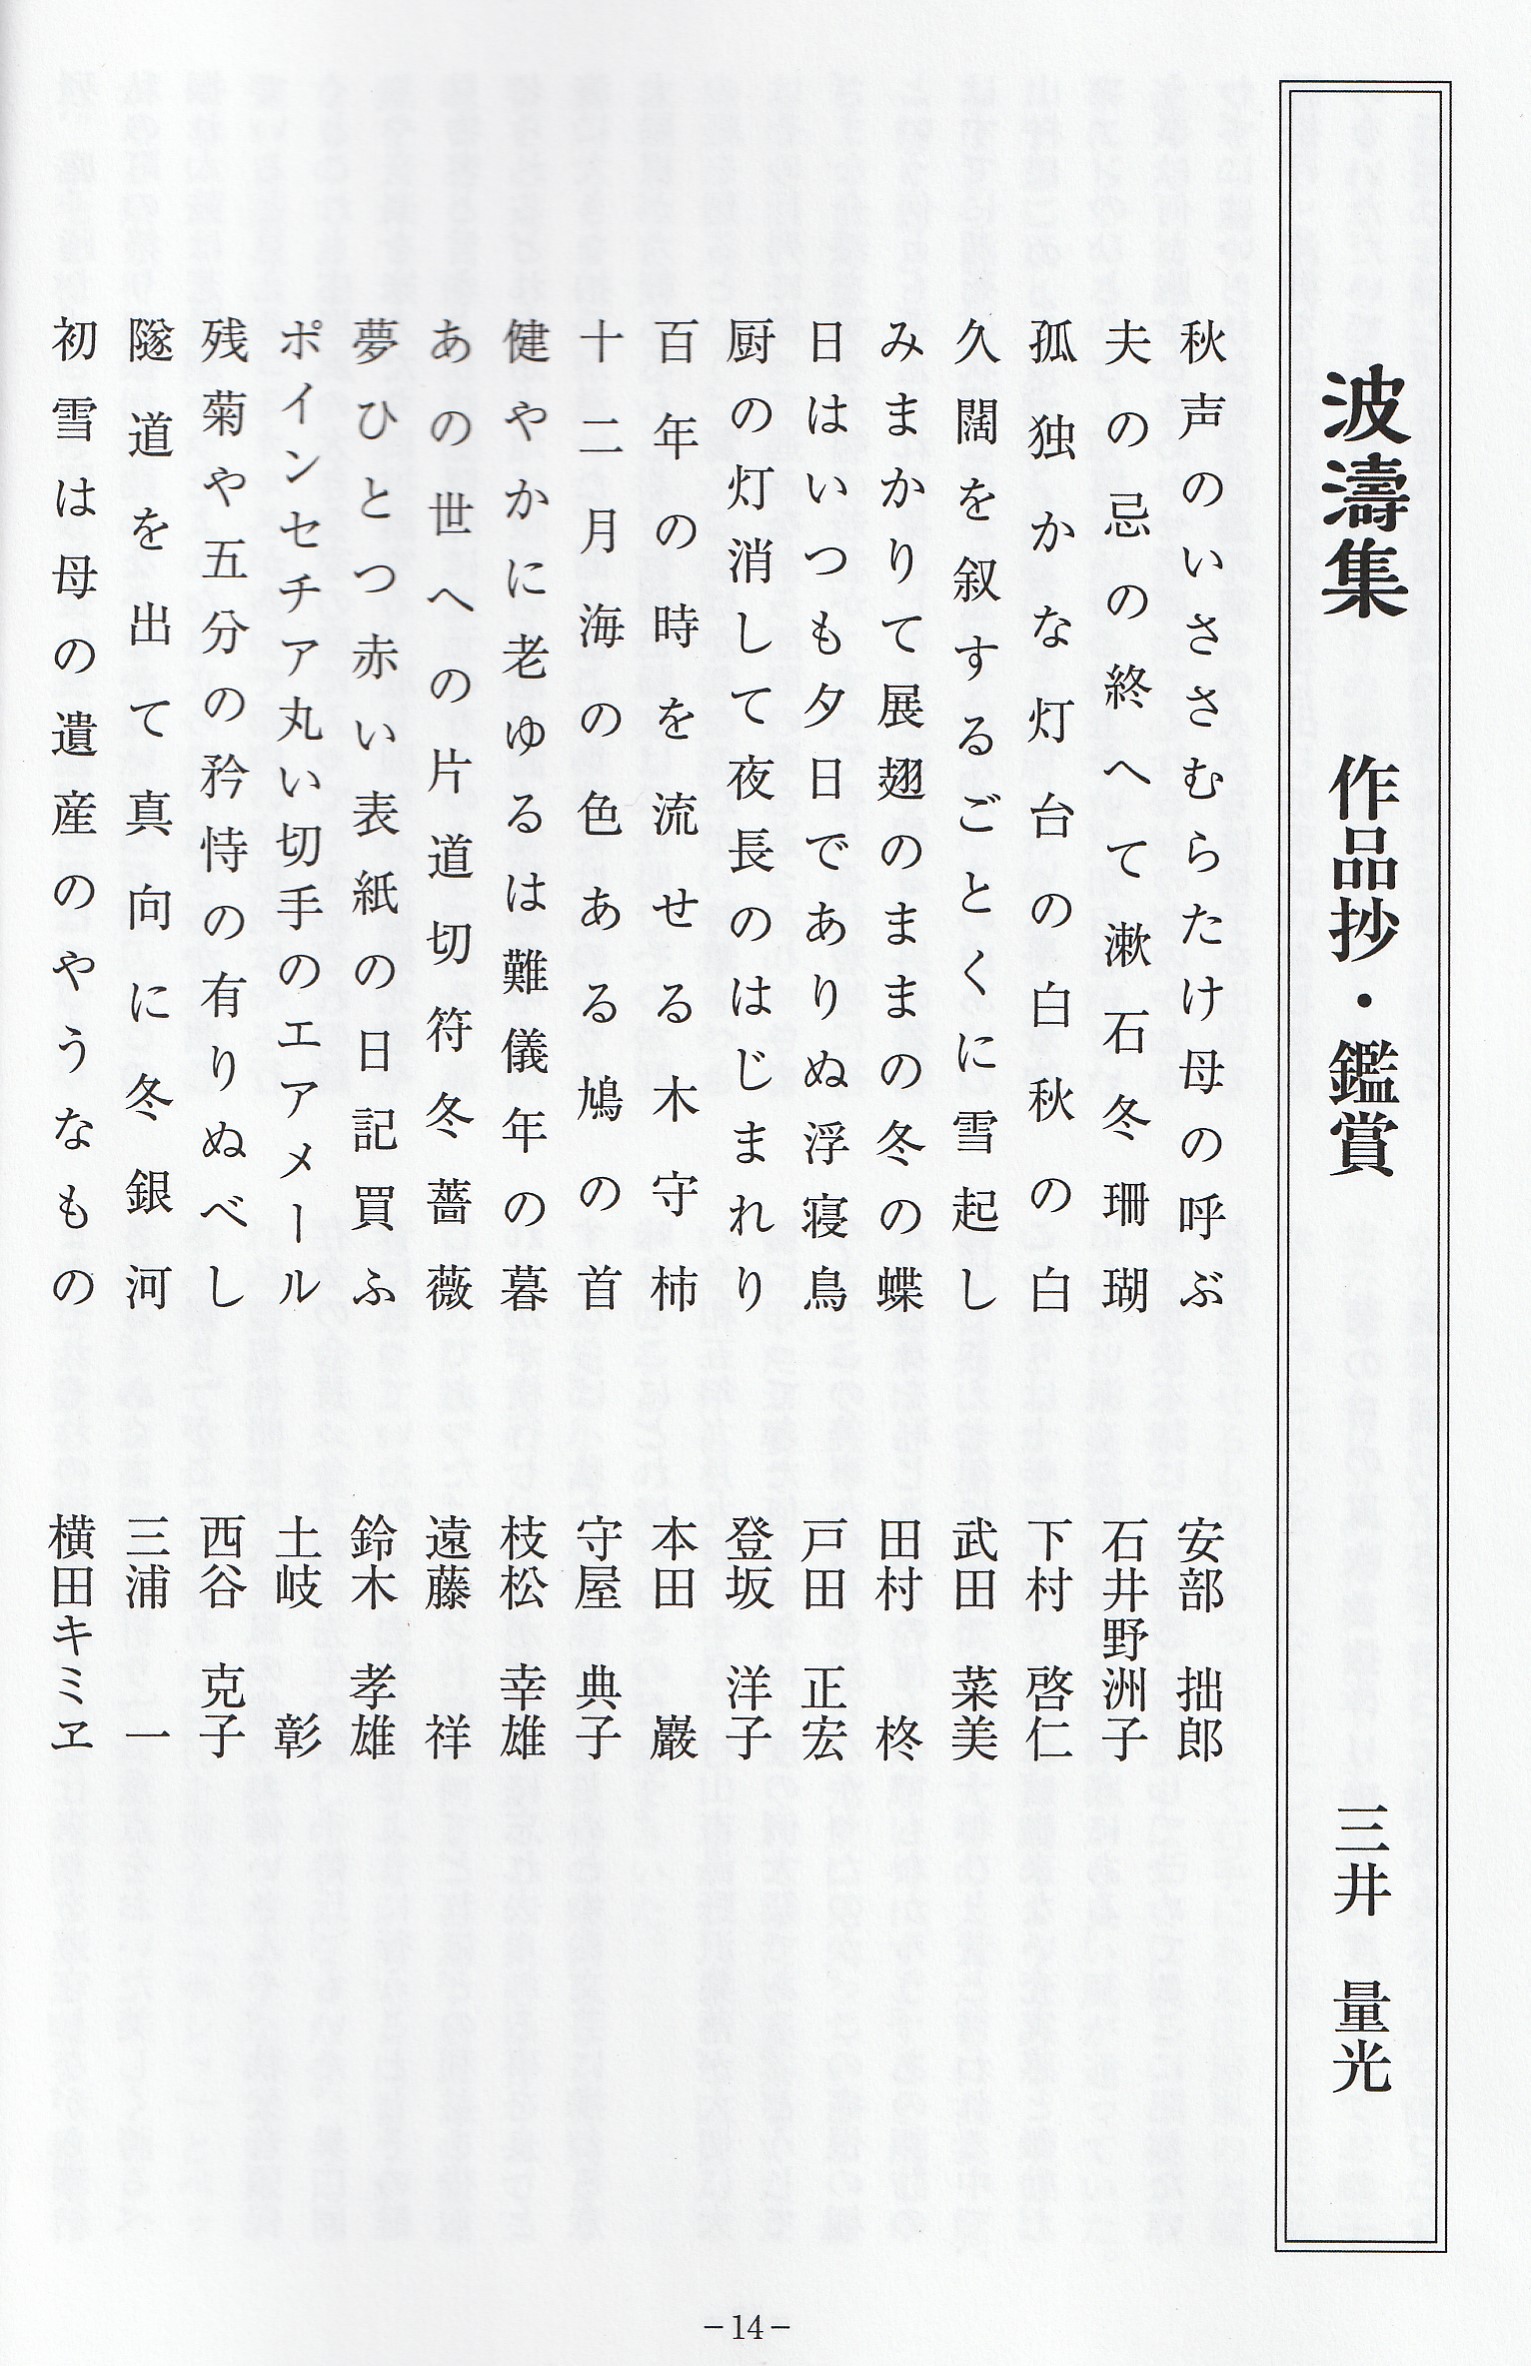 波濤集　作品抄・鑑賞　三井　量光
秋声のいささむらたけ母の呼ぶ　安部　拙郎
夫の忌の終へて漱石冬珊瑚　石井野洲子
孤独かな灯台の白秋の白　下村　啓仁
久闊を叙するごとくに雪起し　武田　菜美
みまかりて展翅のままの冬の蝶　田村　柊
日はいつも夕日でありぬ浮寝鳥　戸田　正宏
厨の灯消して夜長のはじまれり　登坂　洋子
百年の時を流せる木守柿　本田　巖
十二月海の色ある鳩の首　守屋　典子
健やかに老ゆるは難儀年の暮　枝松　幸雄
あの世への片道切符冬薔薇　遠藤　祥
夢ひとつ赤い表紙の日記買ふ　鈴木　孝雄
ポインセチア丸い切手のエアメール　土岐　彰
残菊や五分の矜恃の有りぬべし　西谷　克子
隧道を出て真向に冬銀河　三浦　一
初雪は母の遺産のやうなもの　横田キミヱ
－14－